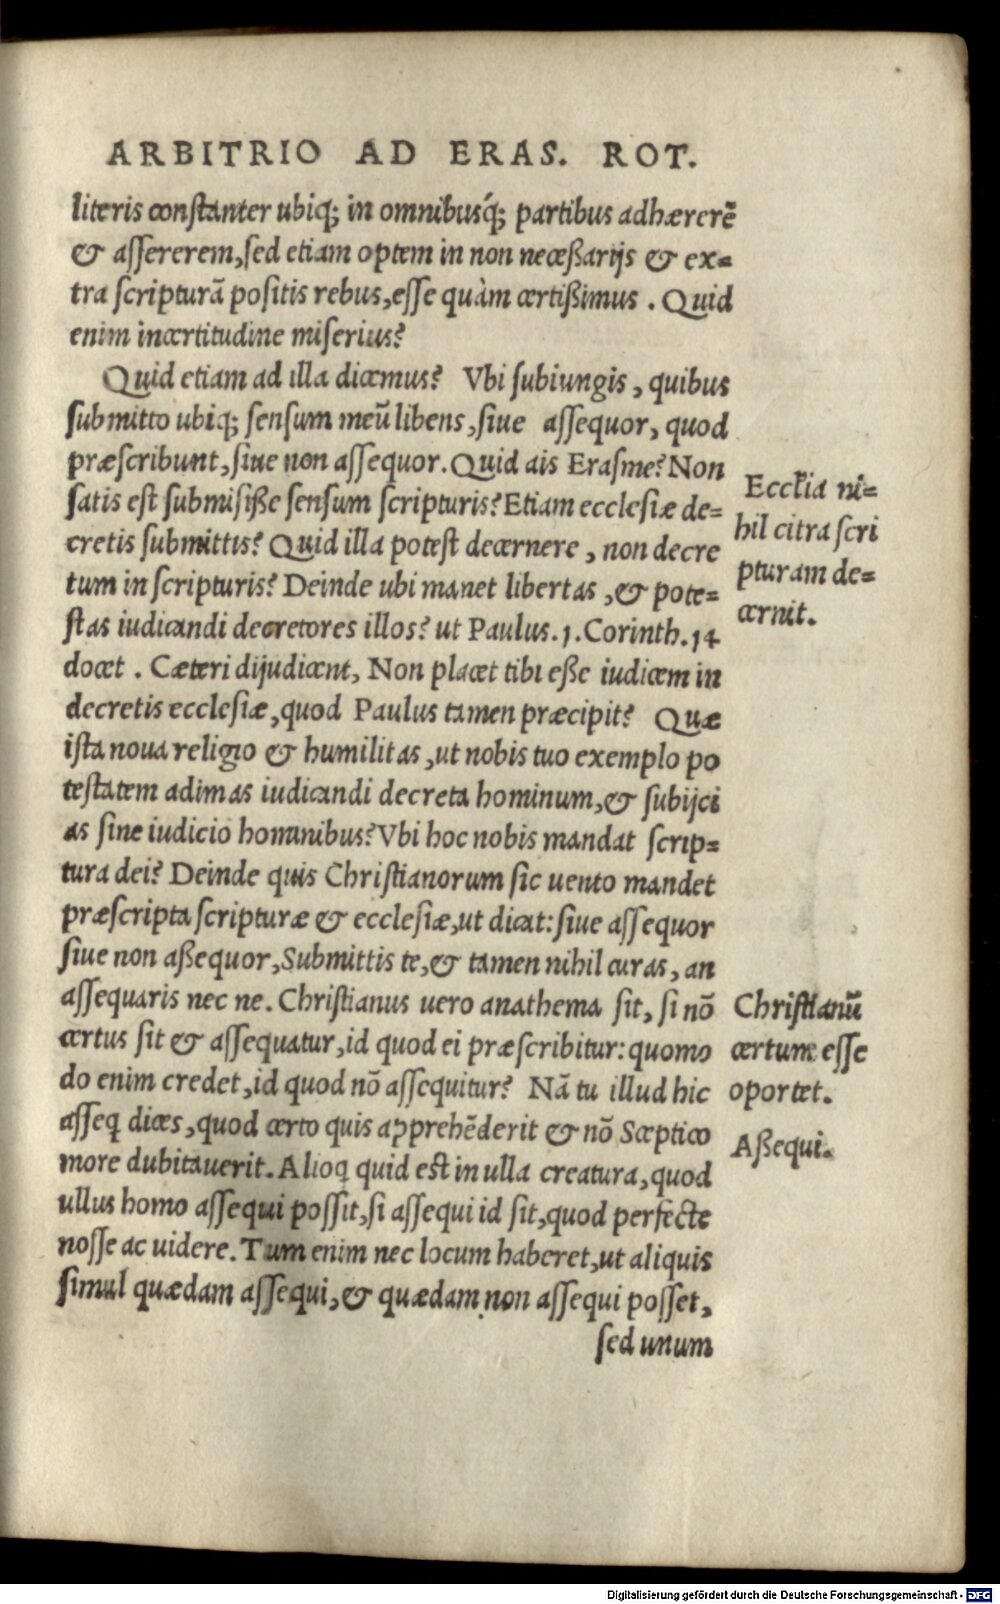 ARBITRIO AD ERAS. ROT.
literis constanter ubiq; in omnibusq́; partibus adhærerẽ
& assererem, sed etiam optem in non necessarijs & ex=
tra scripturã positis rebus, esse quàm certissimus. Quid
enim incertitudine miserius?
Quid etiam ad illa dicemus? Vbi subiungis, quibus
submitto ubiq; sensum meũ libens, siue assequor, quod
præscribunt, siue non assequor. Quid ais Erasme? Non
satis est submisisse sensum scripturis? Etiam ecclesiæ de=
cretis submittis? Quid illa potest decernere, non decre
tum in scripturis? Deinde ubi manet libertas, & pote=
stas iudicandi decretores illos? ut Paulus. 1. Corinth. 14
docet. Cæteri dijudicent, Non placet tibi esse iudicem in
decretis ecclesiæ, quod Paulus tamen præcipit? Quæ
ista noua religio & humilitas, ut nobis tuo exemplo po
testatem adimas iudicandi decreta hominum, & subijci
as sine iudicio hominibus? Vbi hoc nobis mandat scrip=
tura dei? Deinde quis Christianorum sic uento mandet
præscripta scripturæ & ecclesiæ, ut dicat: siue assequor
siue non assequor, Submittis te, & tamen nihil curas, an
assequaris nec ne. Christianus uero anathema sit, si nõ
certus sit & assequatur, id quod ei præscribitur: quomo
do enim credet, id quod nõ assequitur? Nã tu illud hic
asseq dices, quod certo quis apprehẽderit & nõ Sceptico
more dubitauerit. Alioq quid est in ulla creatura, quod
ullus homo assequi possit, si assequi id sit, quod perfecte
nosse ac uidere. Tum enim nec locum haberet, ut aliquis
simul quædam assequi, & quædam non assequi posset,
sed unum
Eccl̃ia ni=
hil citra scri
pturam de=
cernit.
Christianũ
certum esse
oportet.
Assequi.
Digitalisierung gefördert durch die Deutsche Forschungsgemeinschaft - DFG